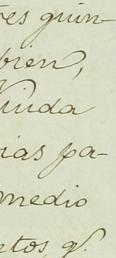 es quin-
bien,
Viuda
ias pa-
medio
etos, q.